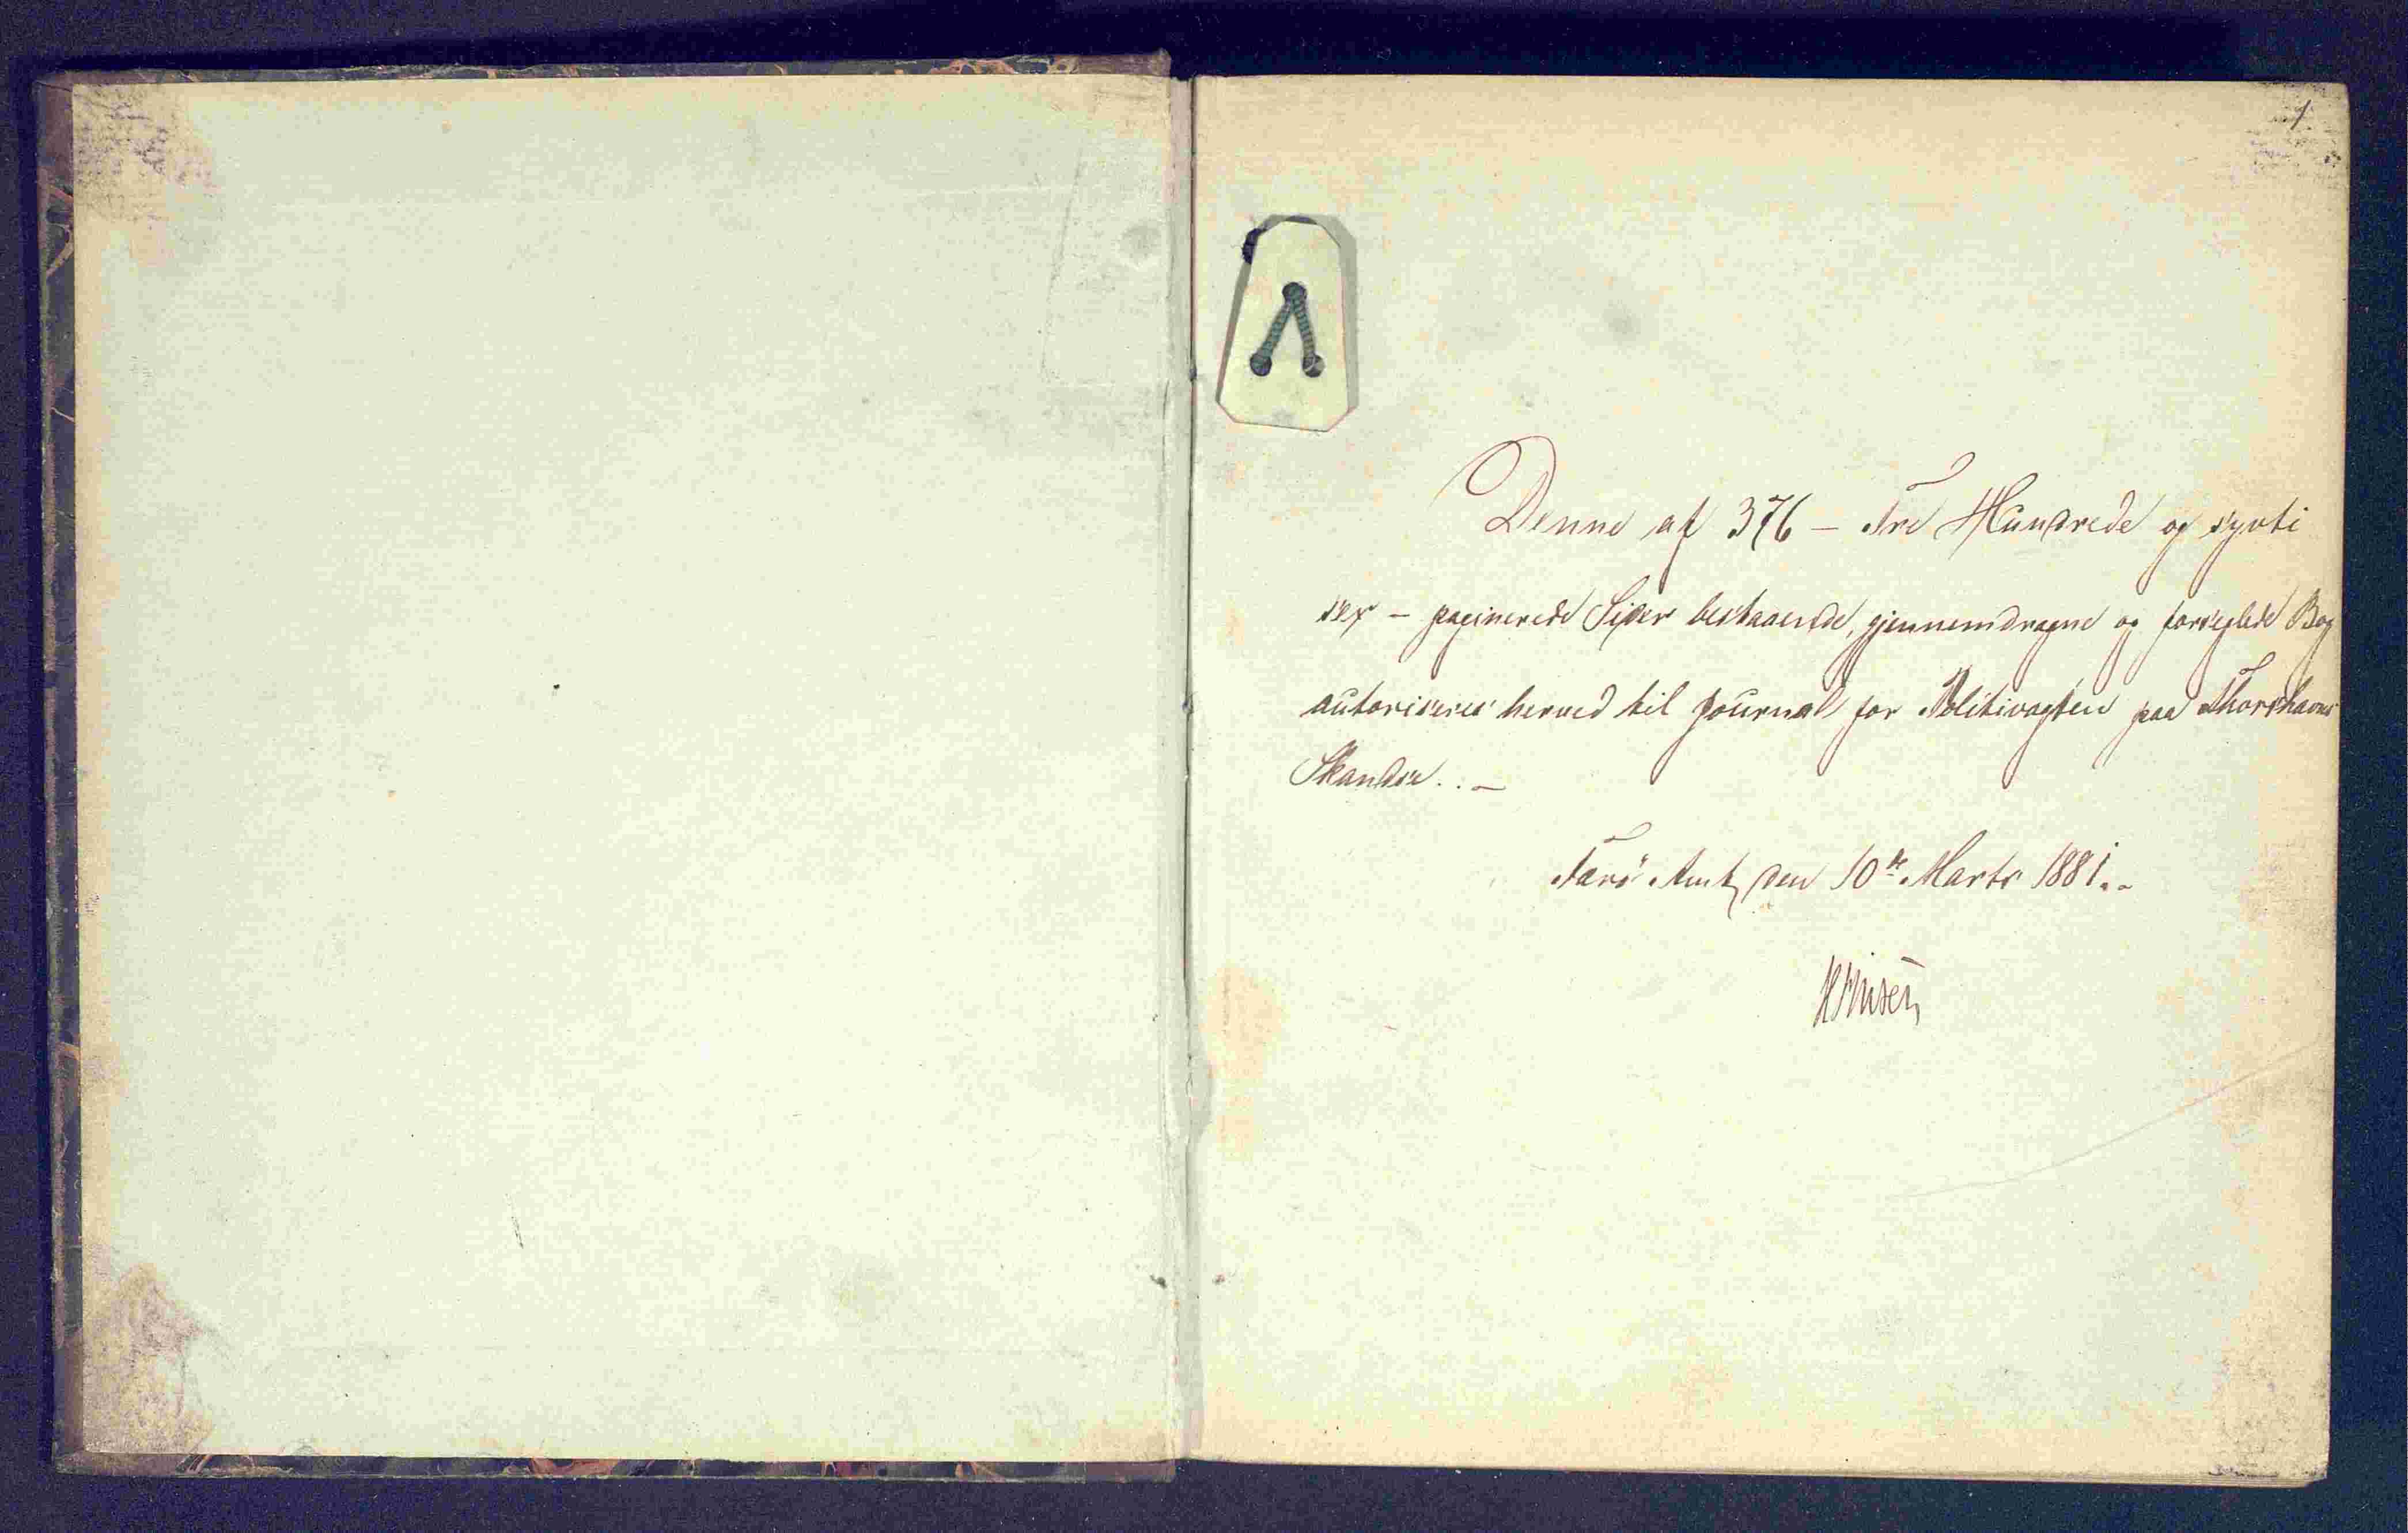 1
Denne af 376 – Tre Hundrede og syvti
sex – paginerede Sider bestaaende, gjennemdragne og forseglede Bog
autoriseres herved til Journal for Politivagten paa Thorshavns
Skandse. . –
Færö Amt, den 10de Marts 1881. –